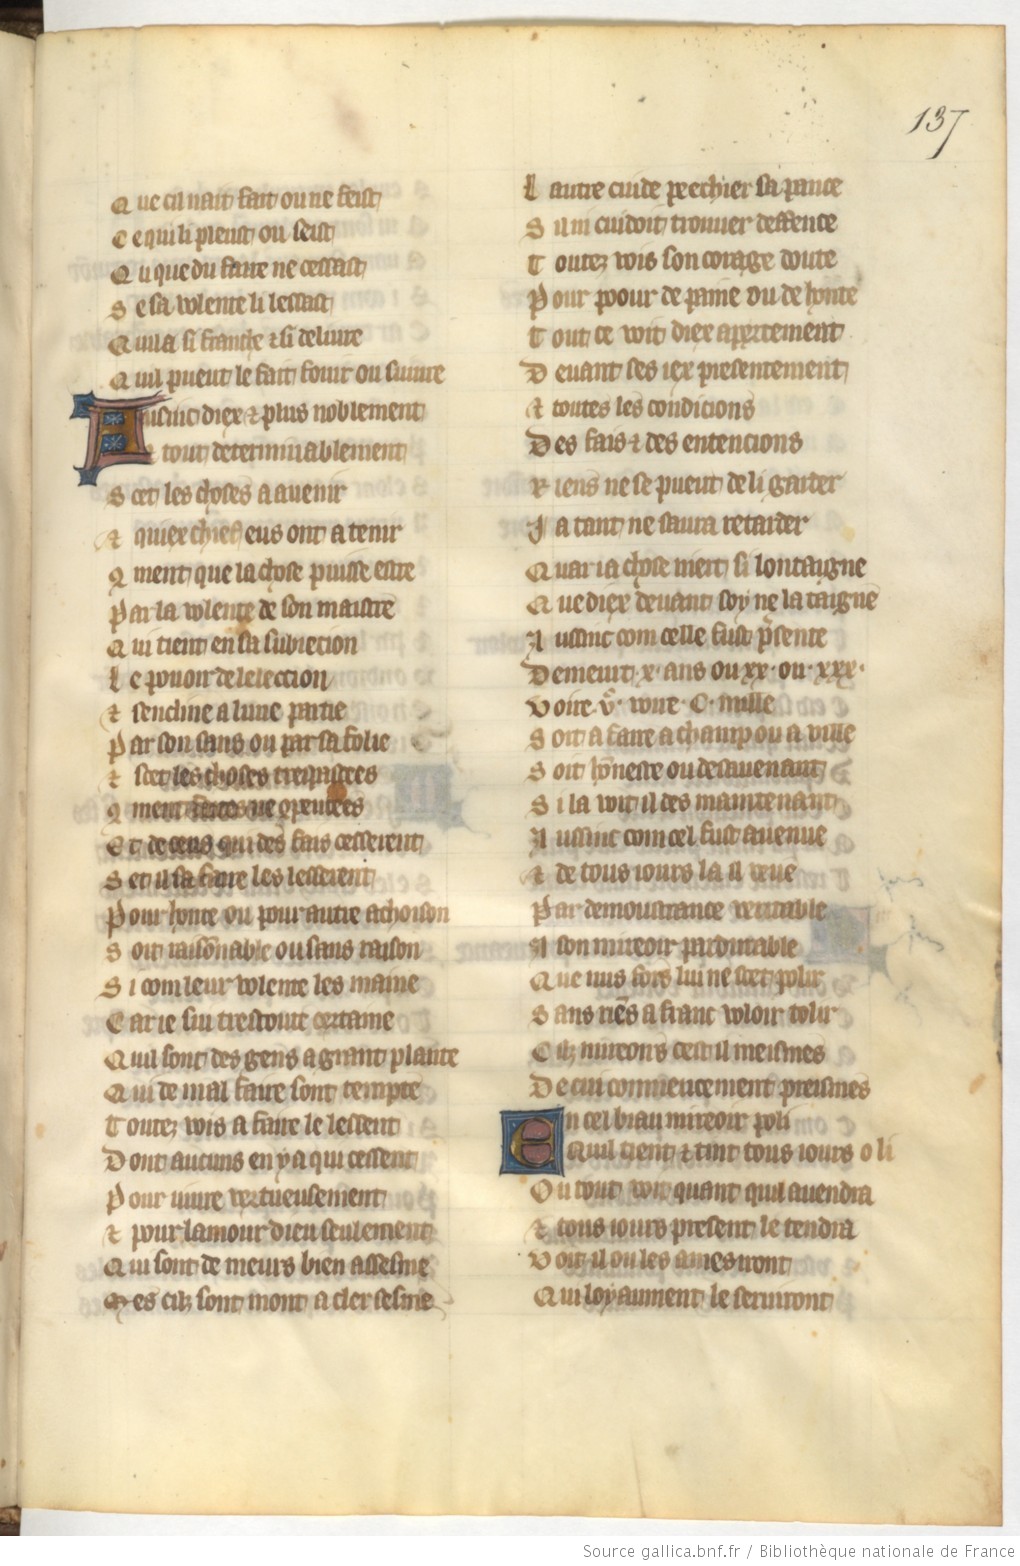 137
Que cil nait fait ou ne feist
Ce qui li pleust ou seist
Ou que du faire ne cessast
Se sa volente li lessast
Quila si franche ⁊ si delivre
Quil pueut le fait fouir ou suivre
Ausinc diex ⁊ plus noblement
Et tout determinablement
Scet les choses a avenir
⁊ quiex chief eus ont a tenir
9ment que la chose puisse estre
Par la volente de son maistre
Qui tient en sa subiection
Le pouoir de lelection
⁊ sencline a lune partie
Par son sans ou par sa folie
⁊ scet les choses trespassees
9ment faites ne
Et de ceus qui des fais cesserent
Set il sa faire les lesserent
Pour honte ou pour autre achoison
Soit raisonable ou sans raison
Si com leur volente les maine
Car ie sui trestout certaine
Quil sont des gens a grant plante
Qui de mal faire sont tempte
Toutez vois a faire le lessent
Dont aucuns en y a qui cessent
Pour vivre vertueusement
⁊ pour lamour dieu seulement
Qui sont de meurs bien
Mes cilz sont mont a cler seme
Lautre cuide pechier sa pance
Sil ni cuidoit trouver deffence
Toutez vois son corage donte
Pour poour de paine ou de honte
Tout ce voit diex apertement
Devant ses iex presentement
⁊ toutes les condicions
Des fais ⁊ des entencions
Riens ne se pueut de li garder
Ja tant ne saura retarder
Quar ia chose niert si lontaigne
Que diex devant soy ne la taigne
Aussinc com celle fust p̃sente
Demeurt .x. ans ou xx. ou .xxx.
Voire .v.c voire .C. mille
Soit a faire a champ ou a ville
Soit hõneste ou desavenant
Si la voit il des maintenant
Aussinc com cel fust avenue
⁊ de tous iours la il veue
Par demoustrance veritable
A son mireoir pardurable
Que nus fors lui ne scet polir
Sans riẽs a franc voloir tolir
Cilz mireors cest il meismes
De cui commencement preismes
En cel biau mireoir poli
Quil tient ⁊ tint tous iours o li
Ou tout voit quant quil avendra
⁊ tous iours present le tendra
Voit il ou les ames iront
Qui loyaument le serviront
Source gallica.bnf.fr / Bibliothèque nationale de France